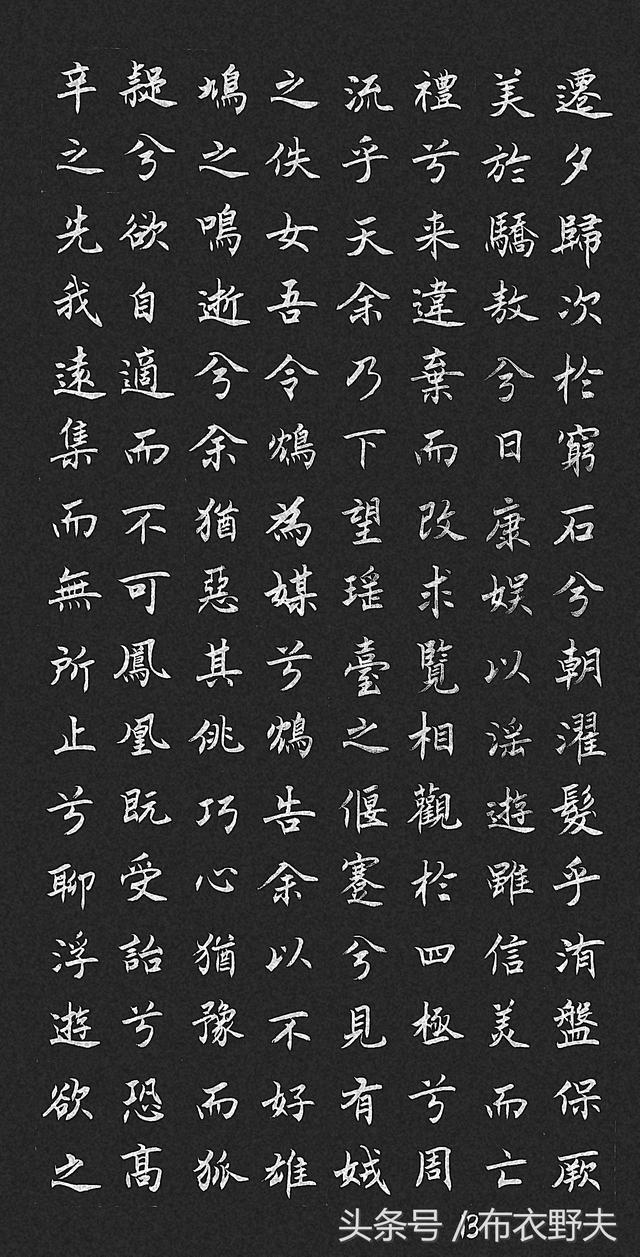 遷夕歸次於窮石兮朝濯髮乎洧盤保厥
美於驕敖兮日康娱以淫遊雖信美而亡
禮兮来違棄而改求覽相觀於四極兮周
流乎天余乃下望瑶臺之偃蹇兮見有娀
之佚女吾令鴆為媒兮鴆告余以不好雄
鳩之鳴逝兮余猶惡其佻巧心猶豫而狐
疑兮欲自適而不可鳳凰既受詒兮恐高
辛之先我遠集而無所止兮聊浮遊欲之
13
头条号 / 布衣野夫